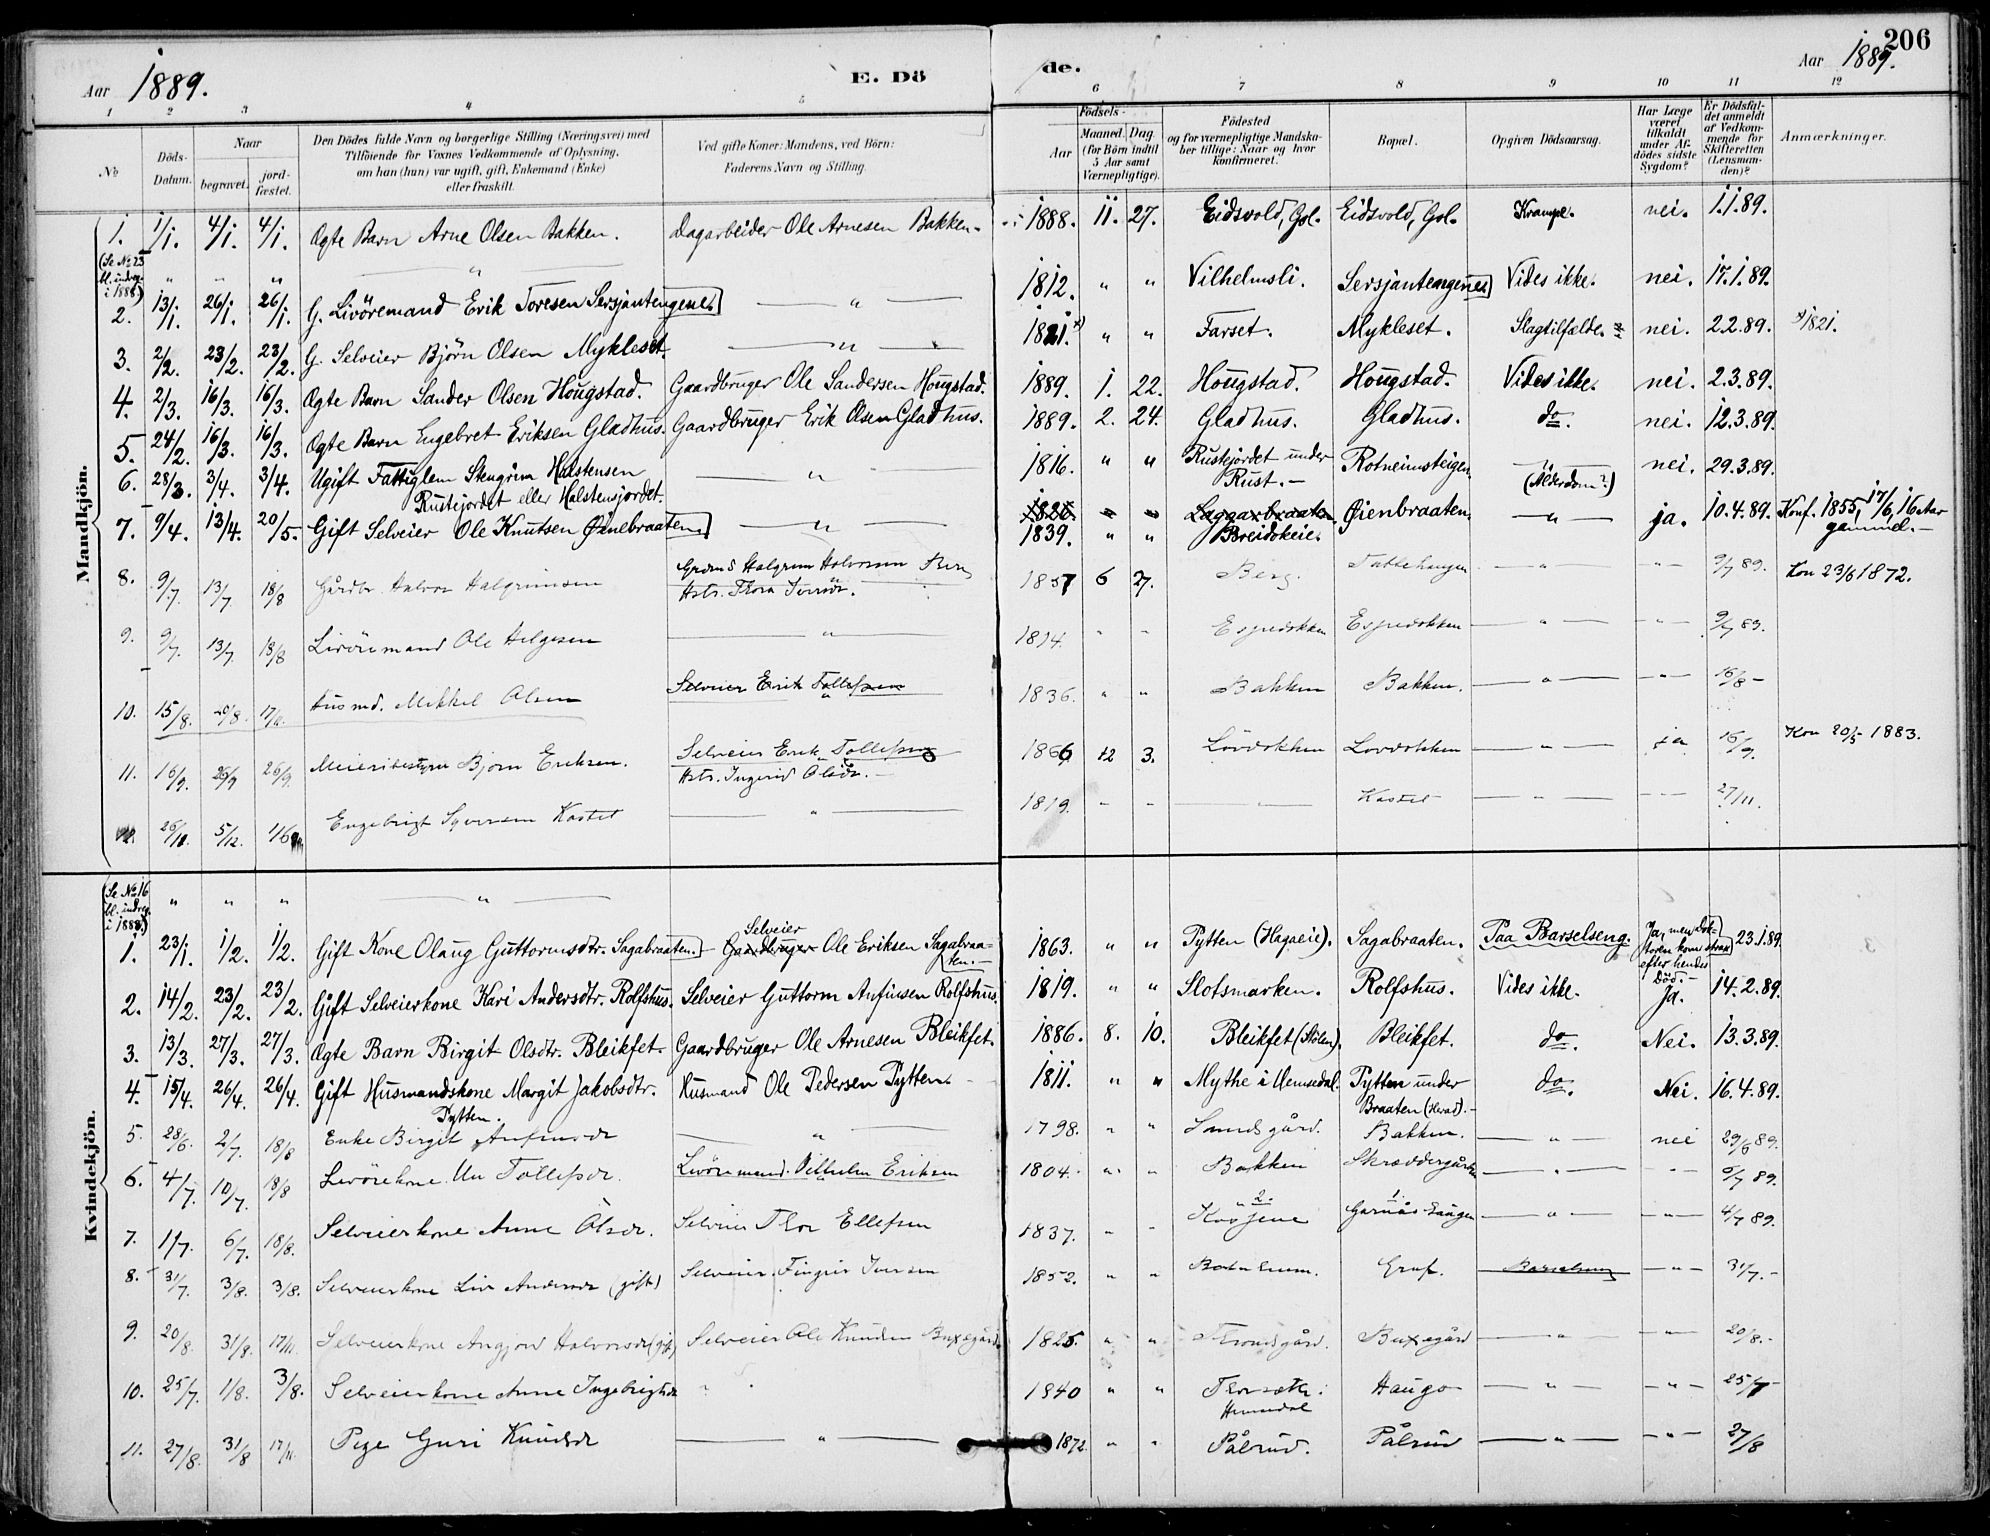 206
Aar 1889. E. Dö de. Aar 1889.
1 2 3 4 5 6 7 8 9 10 11 12
№ Döds-Datum. Naar begravet. jord-fæstet. Den Dödes fulde Navn og borgerlige Stilling (Næringsvei) med Tilföiende for Voxnes Vedkommende af Oplysning, om han (hun) var ugift, gift, Enkemand (Enke) eller fraskilt. Ved gifte Koner: Mandens, ved Börn: Faderens Navn og Stilling. Födsels- Aar Maaned. Dag. (for Börn indtil 5 Aar samt Værnepligtige). Födested og for værnepligtige Mandskaber tillige: Naar og hvor konfirmeret. Bopæl. Opgiven Dödsaarsag. Har Læge været tilkaldt under Afdödes sidste Sygdom? Er Dödsfaldet anmeldt af Vedkommende for Skifteretten (Lensmanden)? Anmærkninger.
Mandkjön.
1. 1/1. 4/1. 4/1. Ægte Barn Arne Olsen Bakken. Dagarbeider Ole Arnesen Bakken. 1888. 11. 27. Eidsvold, Gol. Eidsvold, Gol. Krampe. nei. 1.1.89.
(Se No 23 bl. indreg. i 1888.) " " " "
2. 13/1. 26/1. 26/1. G. Livöremand Erik Toresen Sersjantengene. " 1812. " " Vilhelmsli. Sersjantengene. Vides ikke. nei. 17.1.89.
3. 2/2. 23/2. 23/2. G. Selveier Björn Olsen Mykleset. " 1821. x) " " Farset. Mykleset. Slagtilfælde. nei. 2.2.89. x) 1821.
4. 2/3. 16/3. 16/3. Ægte Barn Sander Olsen Hougstad. Gaardbruger Ole Sandersen Hougstad. 1889. 1. 22. Hougstad. Hougstad. Vides ikke. nei. 2.3.89.
5. 24/2. 16/3. 16/3. Ægte Barn Engebret Eriksen Gladhus. Gaardbruger Erik Olsen Gladhus. 1889. 2. 24. Gladhus. Gladhus. do. nei. 12.3.89.
6. 28/3. 3/4. 3/4. Ugift Fattiglem Stengrim Halstensen Rustejordet eller Halstensjordet. " 1816. " " Rustejordet under Rust. Rotneimsteigen. " (Alderdom?) nei. 29.3.89.
7. 9/4. 13/4. 20/5. Gift Selveier Ole Knutsen Öinebraaten. " 1826. 1839. " " Laggarbraaten. Breidokeie. Öienbraaten. " ja. 10.4.89. Konf. 1855, 17/6, 16 Aar gammel.
8. 9/7. 13/7 18/8 Gårdbr. Halvor Halgrimsen Grdmd Halgrim Halvorsen Berg Hstr. Thora Iversdr. 1857 6 27. Berg. " " 9/7 89. Kon 23/6 1872.
9. 9/7. 13/7. 18/8 Livöremand Ole Helgesen " 1814. " " Espedokken Espedokken " " 9/7 89.
10. 15/8. 20/8. 17/11. Husmd. Mikkel Olsen Selveier Erik Tollefsen 1836. " " Bakken Bakken. " " 16/8
11. 16/9. 26/9 26/9. Meieribestyrer Björn Eriksen. Selveier Erik Tollefsen Hstr. Ingerid Olsdr. 1866 12 3. Lövdokken Lovdokken " ja 16/9. Kon 20/5 1883.
12. 26/11. 5/12. Engebrigt Syversen Kastet " 1819. " " " Kastet " " 27/11.
Kvindekjön.
(Se No 16 bl. indreg. i 1888.) " " " "
1. 23/1. 1/2. 1/2. Gift Kone Olaug Guttormsdtr. Sagabraaten. Selveier Gaardbruger Ole Eriksen Sagabraaten. 1863. " " Pytten (Hagaeie). Sagabraaten. Paa Barselseng. Ja, men doktoren kom strax efter hendes Död. 23.1.89.
2. 14/2. 23/2. 23/2. Gift Selveierkone Kari Andersdtr. Rolfshus. Selveier Guttorm Anfinsen Rolfshus. 1819. " " Slotsmarken. Rolfshus. Vides ikke. Ja. 14.2.89.
3. 13/3. 27/3. 27/3. Ægte Barn Birgit Olsdtr. Bleikfet. Gaardbruger Ole Arnesen Bleikfet. 1886. 8. 10. Bleikfet (Stölen). Bleikfet. do. Nei. 13.3.89.
4. 15/4. 26/4. 26/4. Gift Husmandskone Margit Jakobsdtr. Pytten. Husmand Ole Pedersen Pytten. 1811. " " Mythe i Hemsedal. Pytten under Braaten (Herad). do. Nei. 16.4.89.
5. 28/6. 2/7. 18/8 Enke Birgit Anfinsdr " 1798. " " Bakken. " nei 29/6 89.
6. 4/7. 10/7. 18/8 Livörekone Un Tollefsdr. Livöremand Vilhelm Eriksen 1804. " " Bakken Skræddergården " " 5/7 89.
7. 1/7. 6/7. 18/8. Selveierkone Anne Olsdr. Selveier Thor Ellefsen 1837. " " 2. 1. Garnås Haugen " " 4/7 89.
8. 31/7. 3/8. 3/8. Selveierkone Liv Andersdr (gift) Selveier Fingir Iversen 1852. " " Gruf. Barselseng " 31/7.
9. 20/8. 31/8. 17/11. Selveierkone Angjerd Halvorsdr (gift) Selveier Ole Knudsen Buxegård. 1825. " " Trondsgård. Buxegård " " 20/8.
10. 25/7. 1/8. 3/8. Selveierkone Anne Ingebrigtsdr " 1840 " " Thorsæth i Hemsedal Haugo " " 25/7
11. 27/8. 31/8 17/11. Pige Guri Knudsdr " 1872. " " Pålsrud. Pålsrud " " 27/8